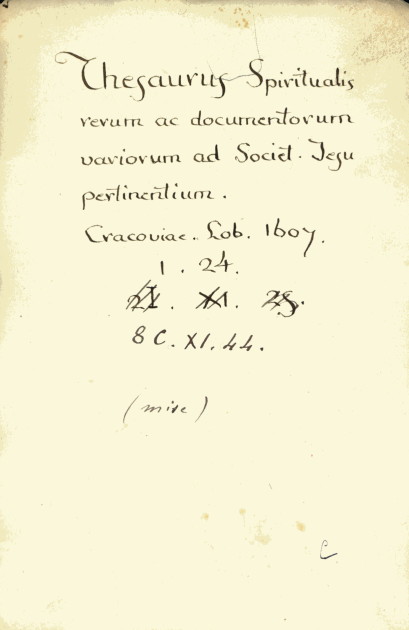 Thesaurus Spiritualis
rerum ac documentorum
variorum ad Societ. Jesu
pertinentium.
Cracoviae. Lob. 1607.
1. 24.
XI.
8 C. XI. 44.
(mise)
C